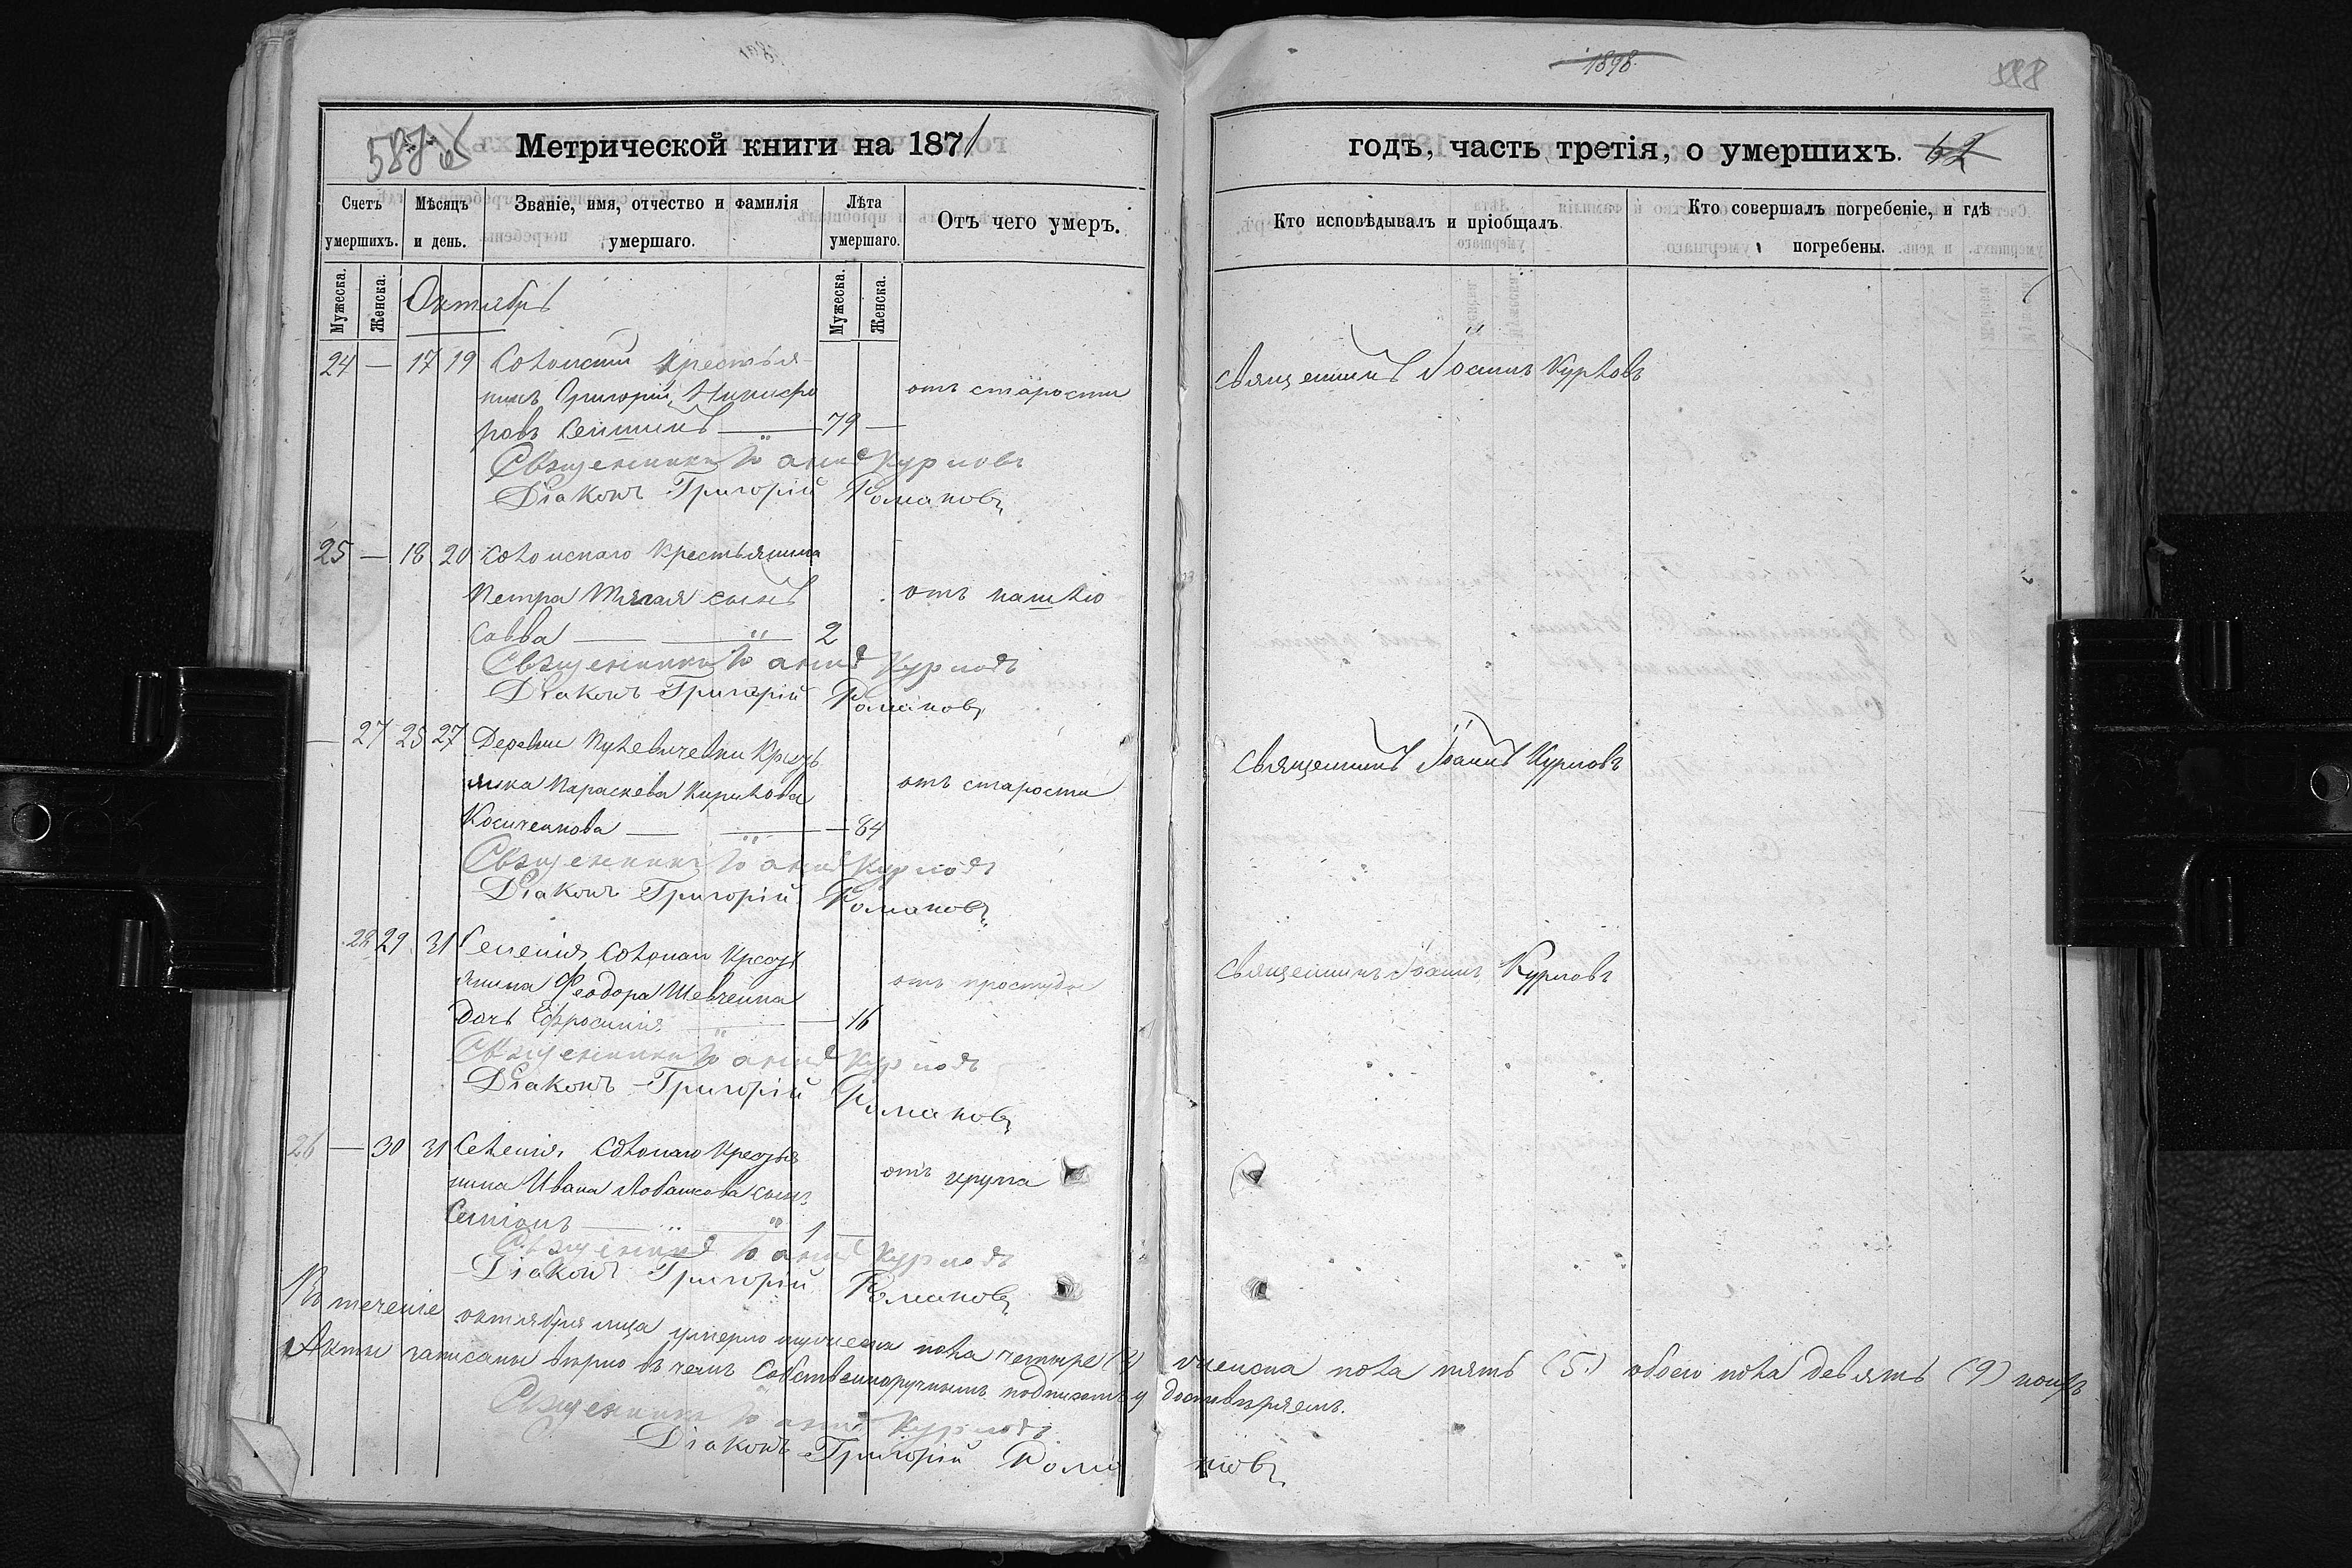 1898
588
Метрической книги на 1871
годъ, часть третія, о умершихъ. 62
Счетъ умершихъ.
Мѣсяцъ и день.
Званіе, имя, отчество и фамилія умершаго.
Лѣта умершаго.
Отъ чего умеръ.
Кто исповѣдывалъ и пріобщалъ.
Кто совершалъ погребеніе, и гдѣ погребены.
Мужеска.
Женска.
Мужеска.
Женска.
Октябрь
24 — 17 19 крестья
нинъ Григорій Никифо отъ старости Священникъ Іоаннъ Курловъ
ровъ — 79 —
Священникъ Іоаннъ Курловъ
Діаконъ Григорій Романовъ
25 — 18 20 крестьянина
Петра сынъ отъ кашлю
Савва — 2
Священникъ Іоаннъ Курловъ
Діаконъ Григорій Романовъ
— 27 25 27 Деревни
Параскева Кирилова отъ старости Священникъ Іоаннъ Курловъ
— 84
Священникъ Іоаннъ Курловъ
Діаконъ Григорій Романовъ
28 29 31 Селенія
янина Феодора Шевченка отъ простуды Священникъ Іоаннъ Курловъ
дочь Ефросинія — 16
Священникъ Іоаннъ Курловъ
Діаконъ Григорій Романовъ
26 — 30 31 Селенія
нина Ивана сынъ отъ крупа
Симіонъ — 1 —
Священникъ Іоаннъ Курловъ
Діаконъ Григорій Романовъ
Въ теченіе октября умерло мужеска пола четыре (4) женска пола пять (5) обоего пола девять (9)
Акты записаны вѣрно въ чемъ собственноручнымъ подписомъ удостовѣряемъ.
Священникъ Іоаннъ Курловъ
Діаконъ Григорій Романовъ